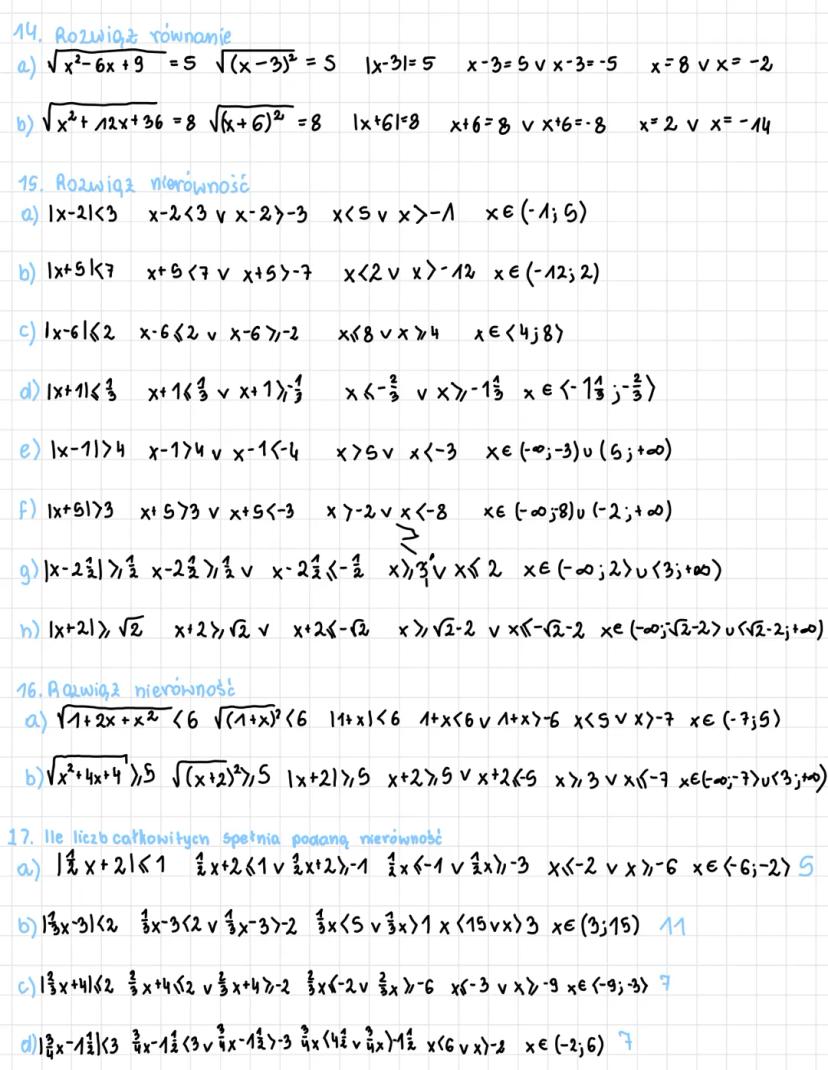 14. Rozwiąż równanie
a) √(x²-6x+9) = 5 √((x-3)²) = 5 |x-3|= 5 x-3=5 ∨ x-3=-5 x=8 ∨ x= -2
b) √(x²+12x+36) = 8 √((x+6)²) = 8 |x+6|=8 x+6=8 ∨ x+6=-8 x=2 ∨ x= -14
15. Rozwiąż nierówność
a) |x-2|<3 x-2<3 ∨ x-2>-3 x<5 ∨ x>-1 x∈(-1;5)
b) |x+5|<7 x+5<7 ∨ x+5>-7 x<2 ∨ x>-12 x∈(-12;2)
c) |x-6|⩽2 x-6⩽2 ∨ x-6⩾-2 x⩽8 ∨ x⩾4 x∈<4;8>
d) |x+1|⩽1/3 x+1⩽1/3 ∨ x+1⩾-1/3 x⩽-2/3 ∨ x⩾-1 1/3 x∈<-1 1/3;-2/3>
e) |x-1|>4 x-1>4 ∨ x-1<-4 x>5 ∨ x<-3 x∈(-∞;-3)∪(5;+∞)
f) |x+5|>3 x+5>3 ∨ x+5<-3 x>-2 ∨ x<-8 x∈(-∞;-8)∪(-2;+∞)
g) |x-2 1/2|⩾1/2 x-2 1/2⩾1/2 ∨ x-2 1/2⩽-1/2 x⩾3 ∨ x⩽2 x∈(-∞;2>∪<3;+∞)
h) |x+2|⩾√2 x+2⩾√2 ∨ x+2⩽-√2 x⩾√2-2 ∨ x⩽-√2-2 x∈(-∞;-√2-2>∪<√2-2;+∞)
16. Rozwiąż nierówność
a) √(1+2x+x²) <6 √((1+x)²)<6 |1+x|<6 1+x<6 ∨ 1+x>-6 x<5 ∨ x>-7 x∈(-7;5)
b) √(x²+4x+4)⩾5 √((x+2)²)⩾5 |x+2|⩾5 x+2⩾5 ∨ x+2⩽-5 x⩾3 ∨ x⩽-7 x∈(-∞;-7>∪<3;+∞)
17. Ile liczb całkowitych spełnia podaną nierówność
a) |1/2x+2|⩽1 1/2x+2⩽1 ∨ 1/2x+2⩾-1 1/2x⩽-1 ∨ 1/2x⩾-3 x⩽-2 ∨ x⩾-6 x∈<-6;-2> 5
b) |1/3x-3|<2 1/3x-3<2 ∨ 1/3x-3>-2 1/3x<5 ∨ 1/3x>1 x<15 ∨ x>3 x∈(3;15) 11
c) |2/3x+4|⩽2 2/3x+4⩽2 ∨ 2/3x+4⩾-2 2/3x⩽-2 ∨ 2/3x⩾-6 x⩽-3 ∨ x⩾-9 x∈<-9;-3> 7
d) |3/4x-1 1/2|<3 3/4x-1 1/2<3 ∨ 3/4x-1 1/2>-3 3/4x<4 1/2 ∨ 3/4x>-1 1/2 x<6 ∨ x>-2 x∈(-2;6) 7